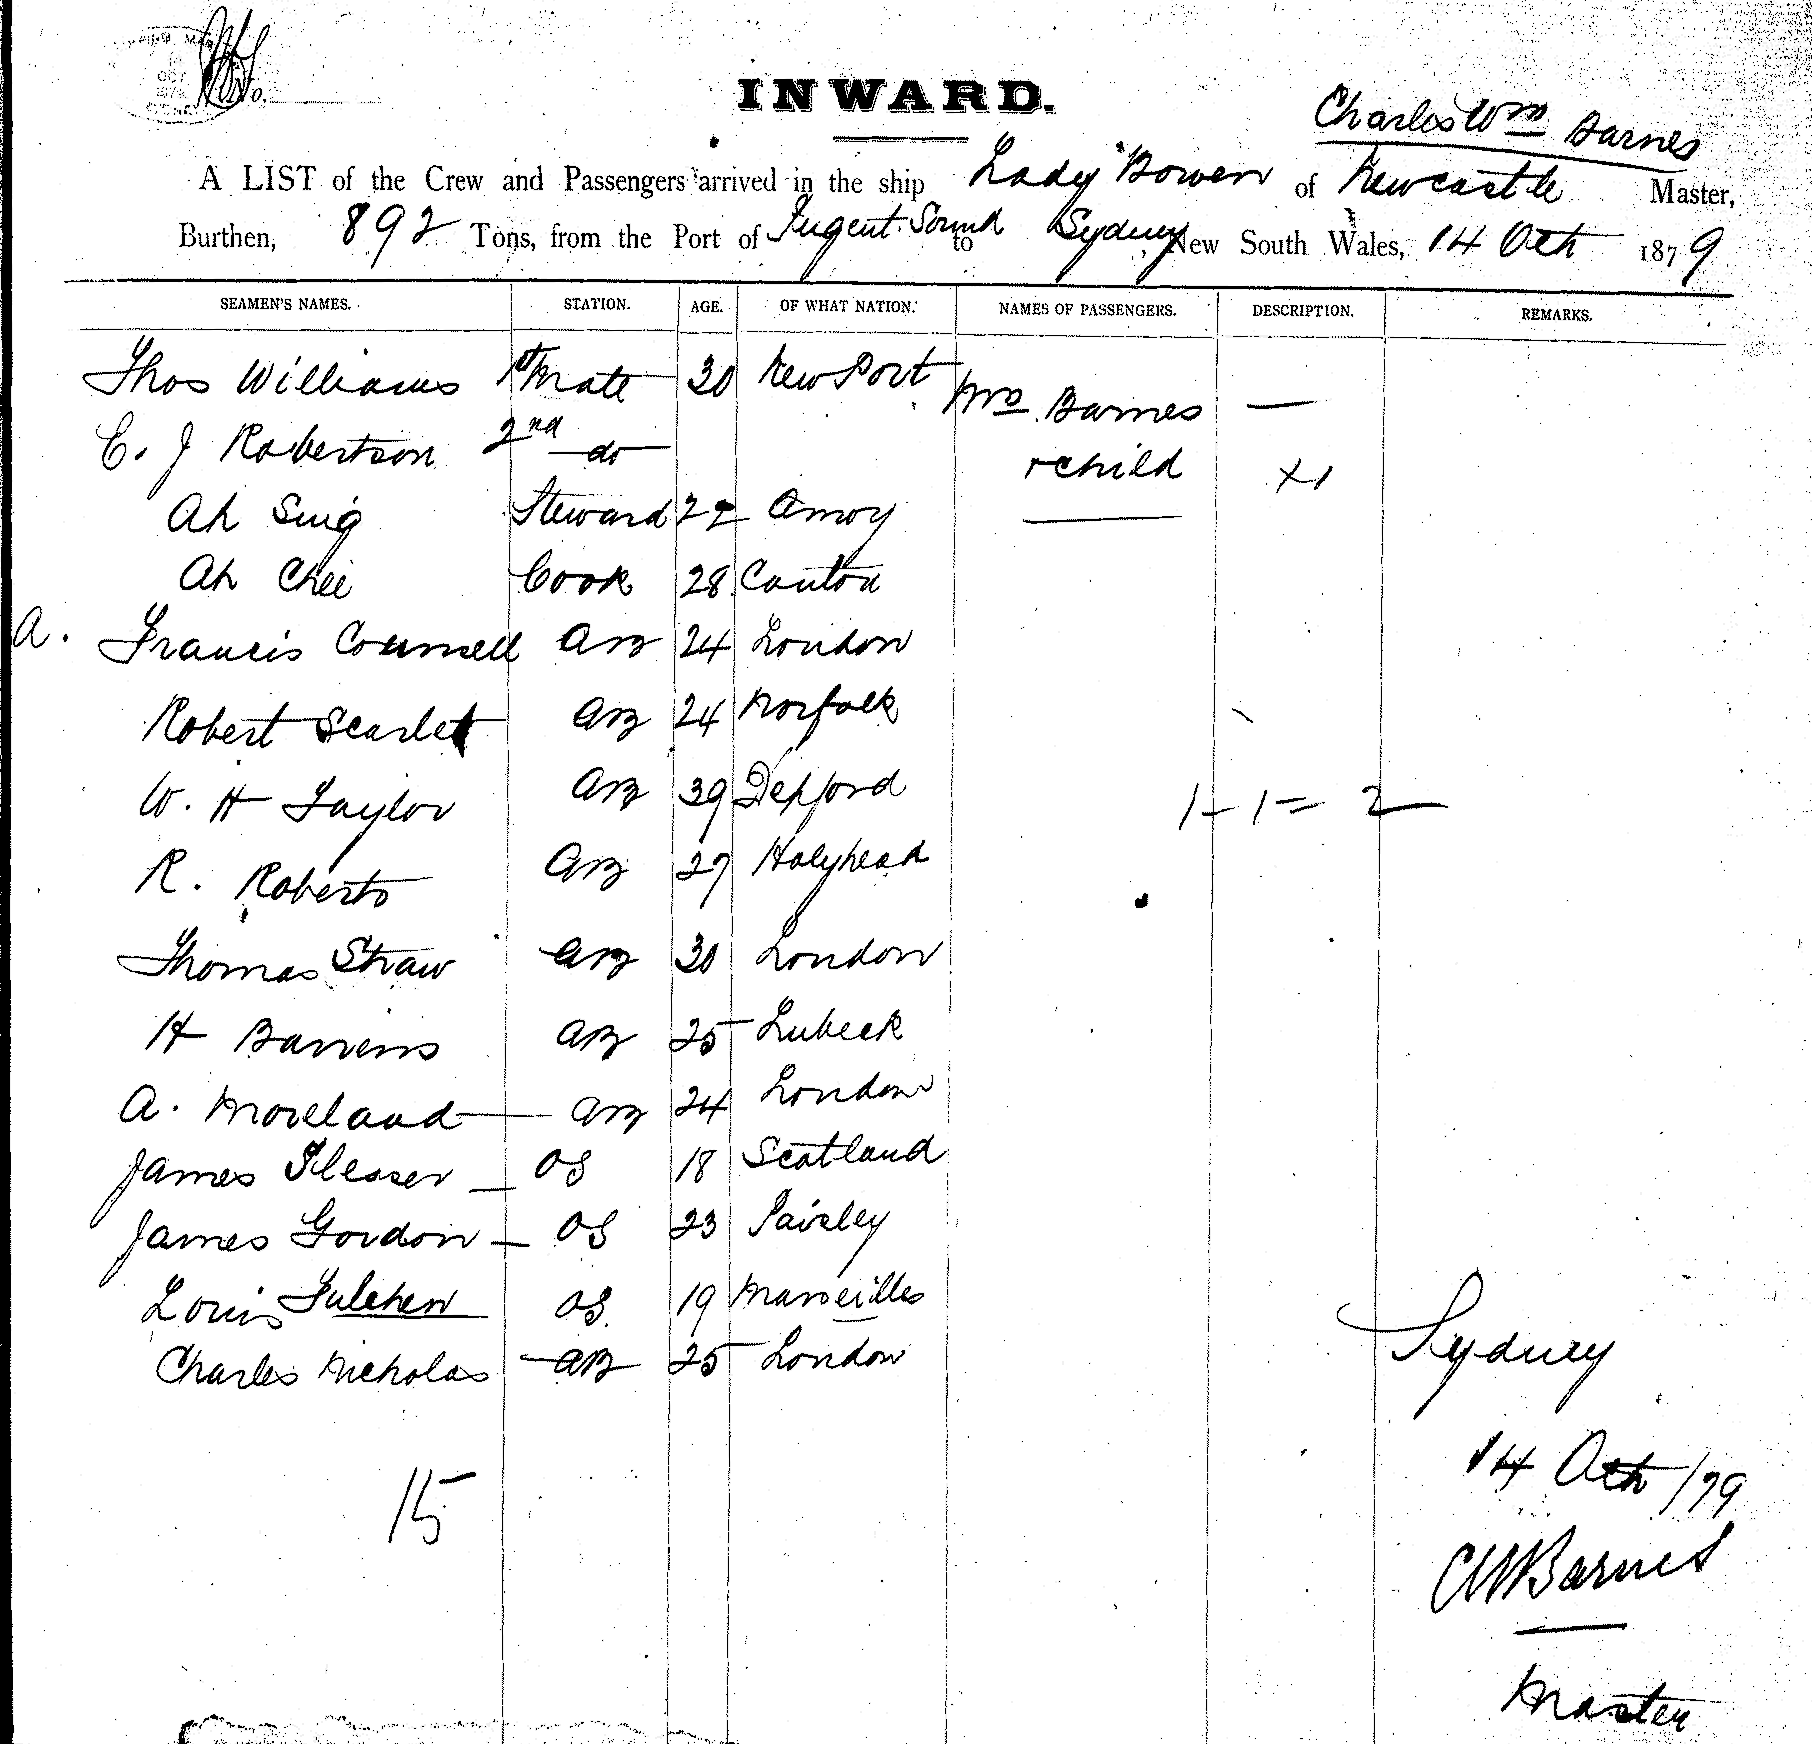 INWARD.
Charles Wm Barnes
A LIST of the Crew and Passengers arrived in the ship Lady Bowen of Newcastle Master,
Burthen, 892 Tons, from the Port of Pugent Sound to Sydney New South Wales, 14 Octr 1879
SEAMEN'S NAMES. STATION. AGE. OF WHAT NATION. NAMES OF PASSENGERS. DESCRIPTION. REMARKS.
Thos Williams 1st Mate 30 New Port Mrs Barnes —
C. J Robertson 2nd do + child X1
Ah Sing Steward 22 Amoy
Ah Chee Cook 28 Canton
A. Francis Counsell AB 24 London
Robert Scarlet AB 24 Norfolk
W. H Taylor AB 39 Depford 1 - 1 = 2
R. Roberts AB 27 Holyhead
Thomas Straw AB 30 London
H Barrens AB 25 Lubeck
A. Moreland AB 24 London
James OS 18 Scotland
James Gordon OS 23 Paisley
Louis OS 19 Marseilles
Charles Nicholas AB 25 London
15
Sydney
14 Octr /79
CWBarnes
Master